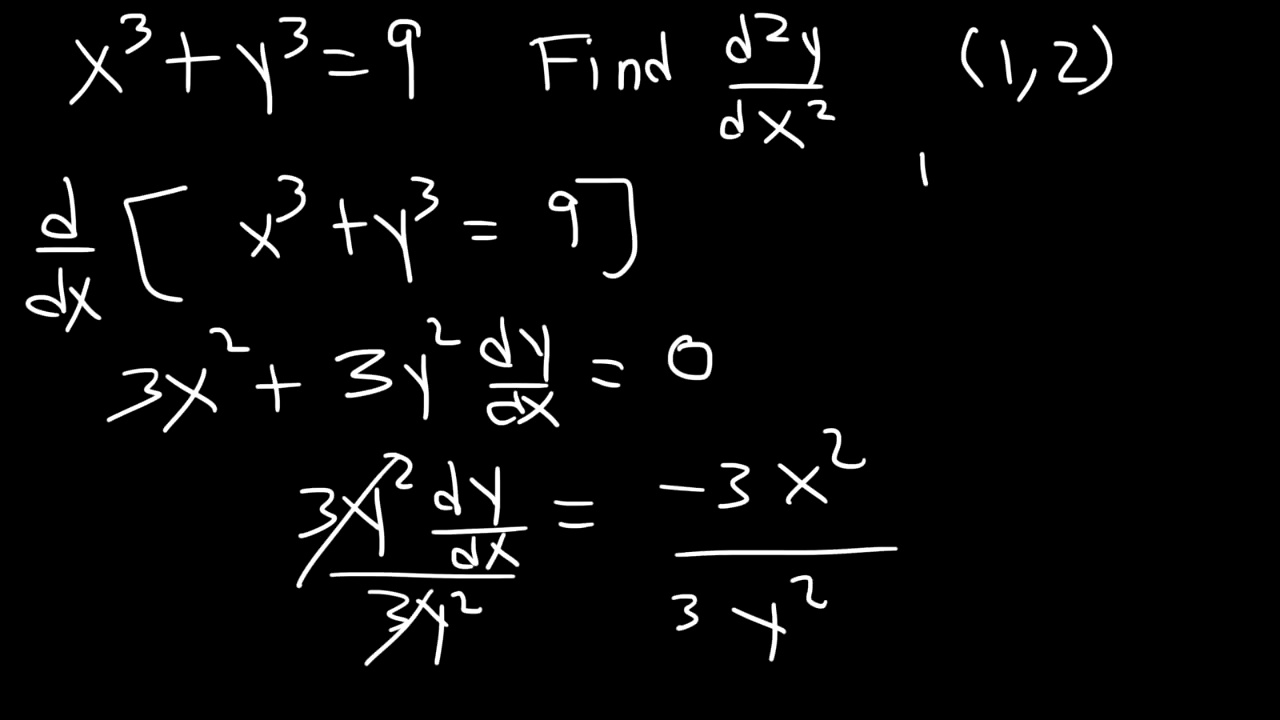 x³ + y³ = 9 Find d²y/dx² (1,2)
d/dx [ x³ + y³ = 9 ]
3x² + 3y² dy/dx = 0
3y² dy/dx / 3y² = -3x² / 3y²